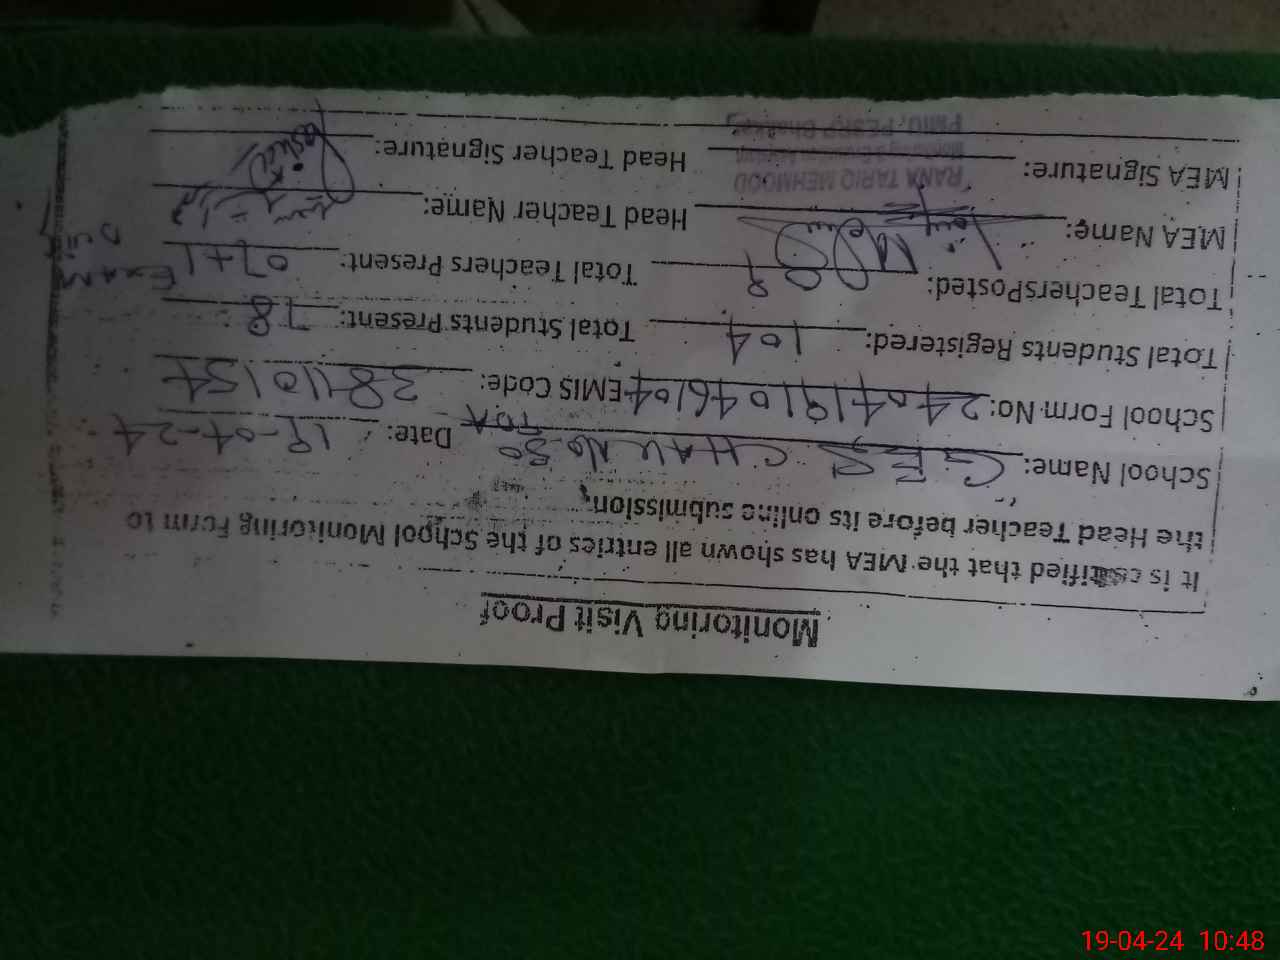 Monitoring Visit Proof
It is certified that the MEA has shown all entries of the School Monitoring Form to
the Head Teacher before its online submission.
School Name: GES CHAK No. 50 TDA Date: 19-04-24
School Form No: 2404191046104 EMIS Code: 38110154
Total Students Registered: 104 Total Students Present: 78
Total TeachersPosted: 8 Total Teachers Present: 07+1 EXAM
MEA Name: Head Teacher Name:
RANA TARIQ MEHMOOD
MEA Signature: Head Teacher Signature:
19-04-24 10:48